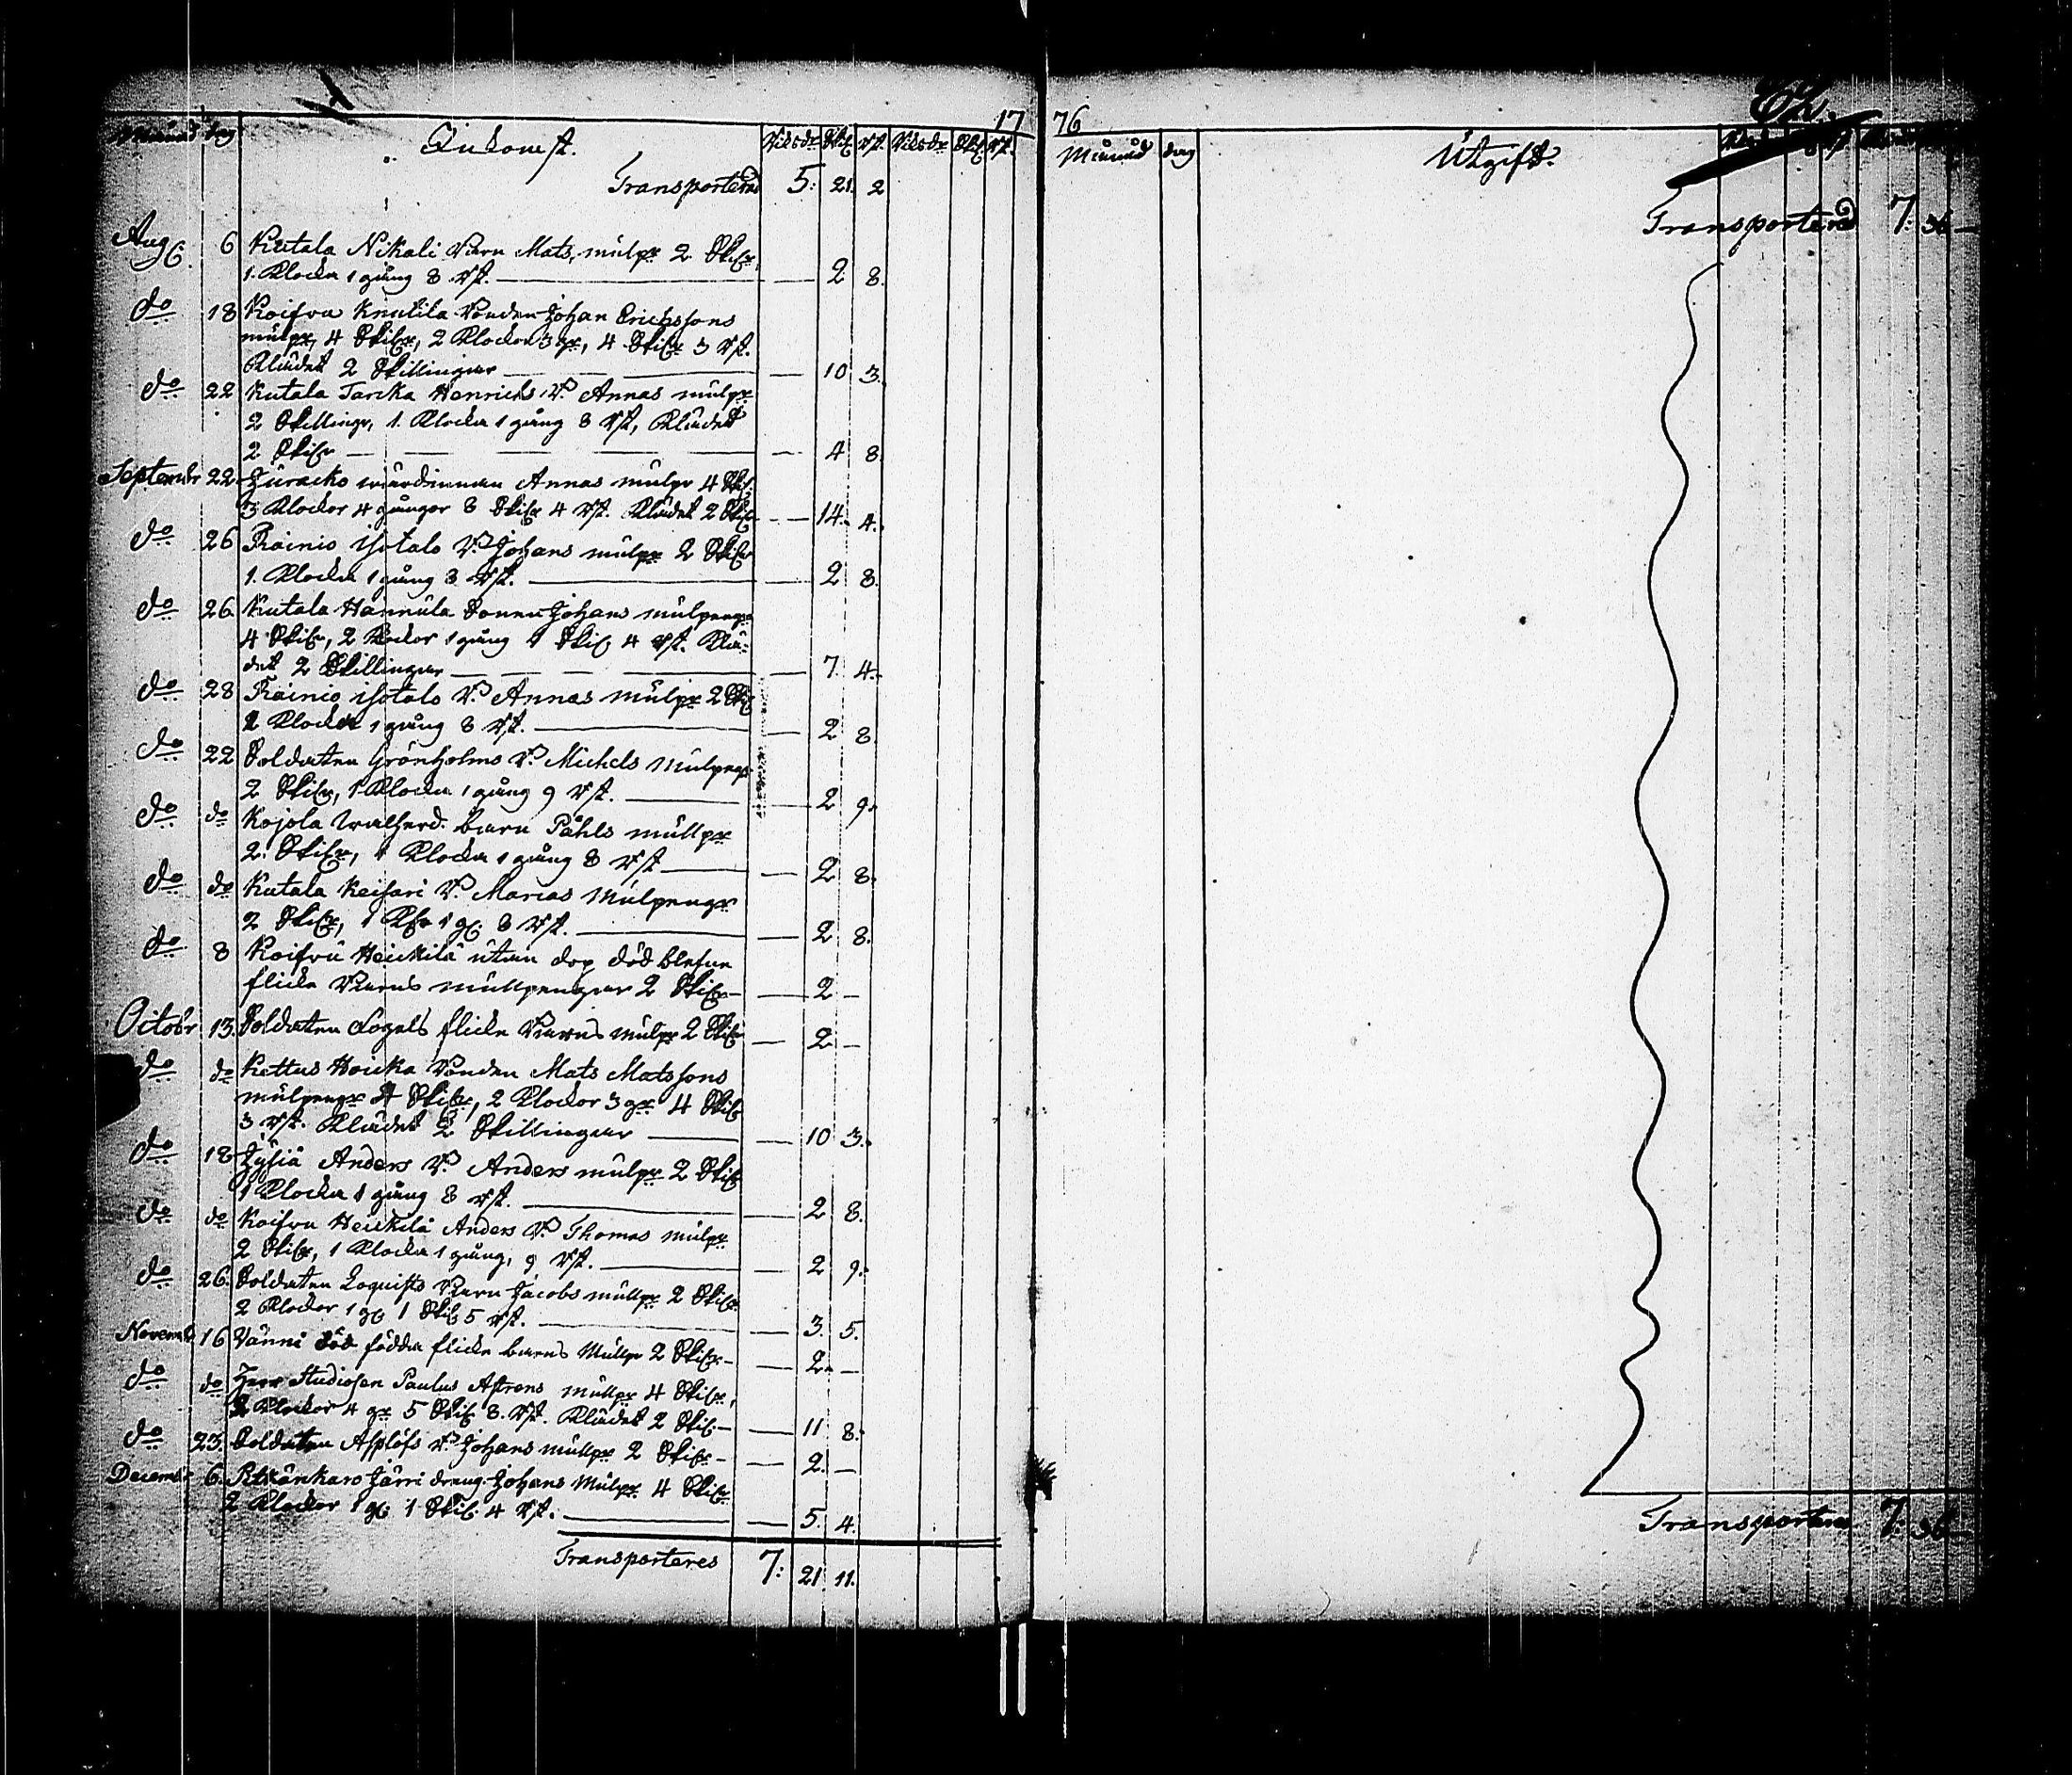 17
Månad dag Inkomst. Riksdr Skil rst. Riksdr Skil rst.
Transporterad 5: 21. 2
Aug: 6 Kutala Nikali Barn Mats, mullpr 2 Skilr,
1. Klocka 1 gång 8 rst. — 2 8.
do 18 Koifvu Knutila Bonden Johan Erichssons
mullpr, 4 Skilr, 2 Klockor 3 gr, 4 Skilr 3 rst.
Klädet 2 Skillingar — 10 3.
do 22 Kutala Tarcka Henrichs B. Annas mullpr
2 Skillingr, 1. Klocka 1 gång 8 rst, Klädet
2 Skilr — 4 8.
Septembr 22 Juracko wärdinnan Annas mullpr 4 Skl.
3 Klockor 4 gånger 8 Skilr 4 rst. Klädet 2 Skilr — 14. 4.
do 26 Rainio isotalo B. Johans mullpr 2 Skilr
1. Klocka 1 gång 8 rst. — 2 8.
do 26. Kutala Hannula Sonen Johans mullpengr
4 Skilr, 2 Klockor 1 gång 1 Skil 4 rst. Klä-
det 2 Skillingar — 7. 4.
do 28 Rainio isotalo B. Annas mullpr 2 Skil
1 Klocka 1 gång 8 rst. — 2 8.
do 22 Soldaten Grönholms B. Michels Mullpengr
2 Skilr, 1 Klocka 1 gång 9 rst. — 2 9.
do do Kojola barn Påhls mullpr
2. Skilr, 1 Klocka 1 gång 8 rst — 2 8.
do do Kutala Keisari B. Marias Mullpengr
2 Skilr, 1 Kl 1 g. 8 rst. — 2 8.
do 8 Koifvu Heickilä utan dop död blefne
flicke Barns mullpengar 2 Skilr — 2 —
Octobr 13. Soldaten Fogels flicke Barns mullpr 2 Skilr — 2 —
do do Kettus Hoicka Bonden Mats Matssons
mullpengr 4 Skilr, 2 Klockor 3 gr 4 Skilr
3 rst. Klädet 2 Skillingar — 10 3.
do 18 Jyliä Anders B. Anders mullpr 2 Skilr
1 Klocka 1 gång 8 rst. — 2 8.
do do Koifvu Heickilä Anders B. Thomas mullpr
2 Skilr, 1 Klocka 1 gång, 9 rst. — 2 9.
do 26. Soldaten Barn Jacobs mullpr 2 Skilr.
2 Klockor 1 g 1 Skil 5 rst. — 3. 5.
Novemb 16 Vänni död födda flicke barns Mullpr 2 Skilr — 2. —
do do Herr Studiosen Paulus Astrens mullpr 4 Skilr,
2 Klockor 4 gr 5 Skil 8. rst. Klädet 2 Skil. — 11 8.
do 23. Soldaten Asplöfs B. Johans mullpr 2 Skilr — 2. —
Decembr 6. Järri dreng Johans Mullpr 4 Skilr
2 Klockor 1 g. 1 Skil. 4 rst. — 5. 4.
Transporteres 7: 21. 11.
76
Månad dag Utgift.
Transporterad 7: 36 —
Transporteres 7: 36 —